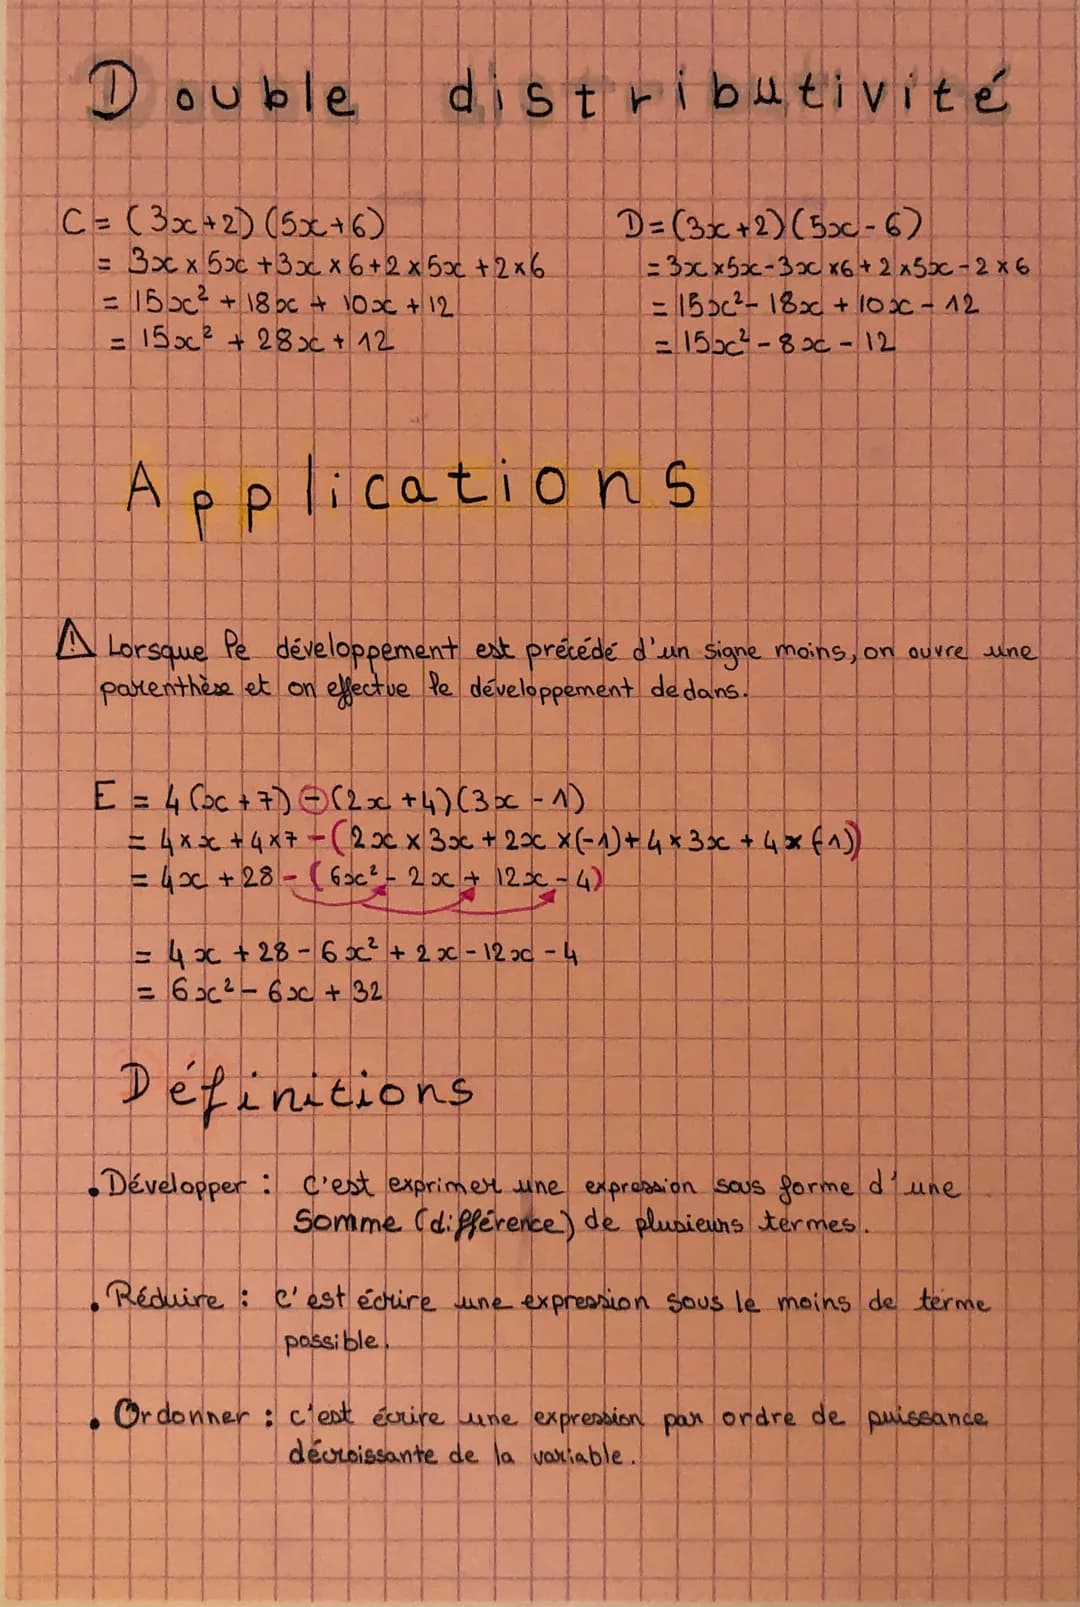 Double distributivité
C = (3x+2)(5x+6)
= 3x × 5x + 3x × 6 + 2 × 5x + 2×6
= 15x² + 18x + 10x + 12
= 15x² + 28x + 12
D = (3x+2)(5x-6)
= 3x×5x-3x×6+2×5x-2×6
= 15x²- 18x + 10x - 12
= 15x² - 8x - 12
Applications
⚠ Lorsque le développement est précédé d'un signe moins, on ouvre une
parenthèse et on effectue le développement dedans.
E = 4(x+7)-(2x+4)(3x-1)
= 4×x+4×7-(2x×3x+2x×(-1)+4×3x+4×(-1))
= 4x+28-(6x²-2x+12x-4)
= 4x+28-6x²+2x-12x-4
= 6x²-6x+32
Définitions
• Développer : c'est exprimer une expression sous forme d'une
Somme (différence) de plusieurs termes.
• Réduire : c'est écrire une expression sous le moins de terme
possible.
• Ordonner : c'est écrire une expression par ordre de puissance
décroissante de la variable.